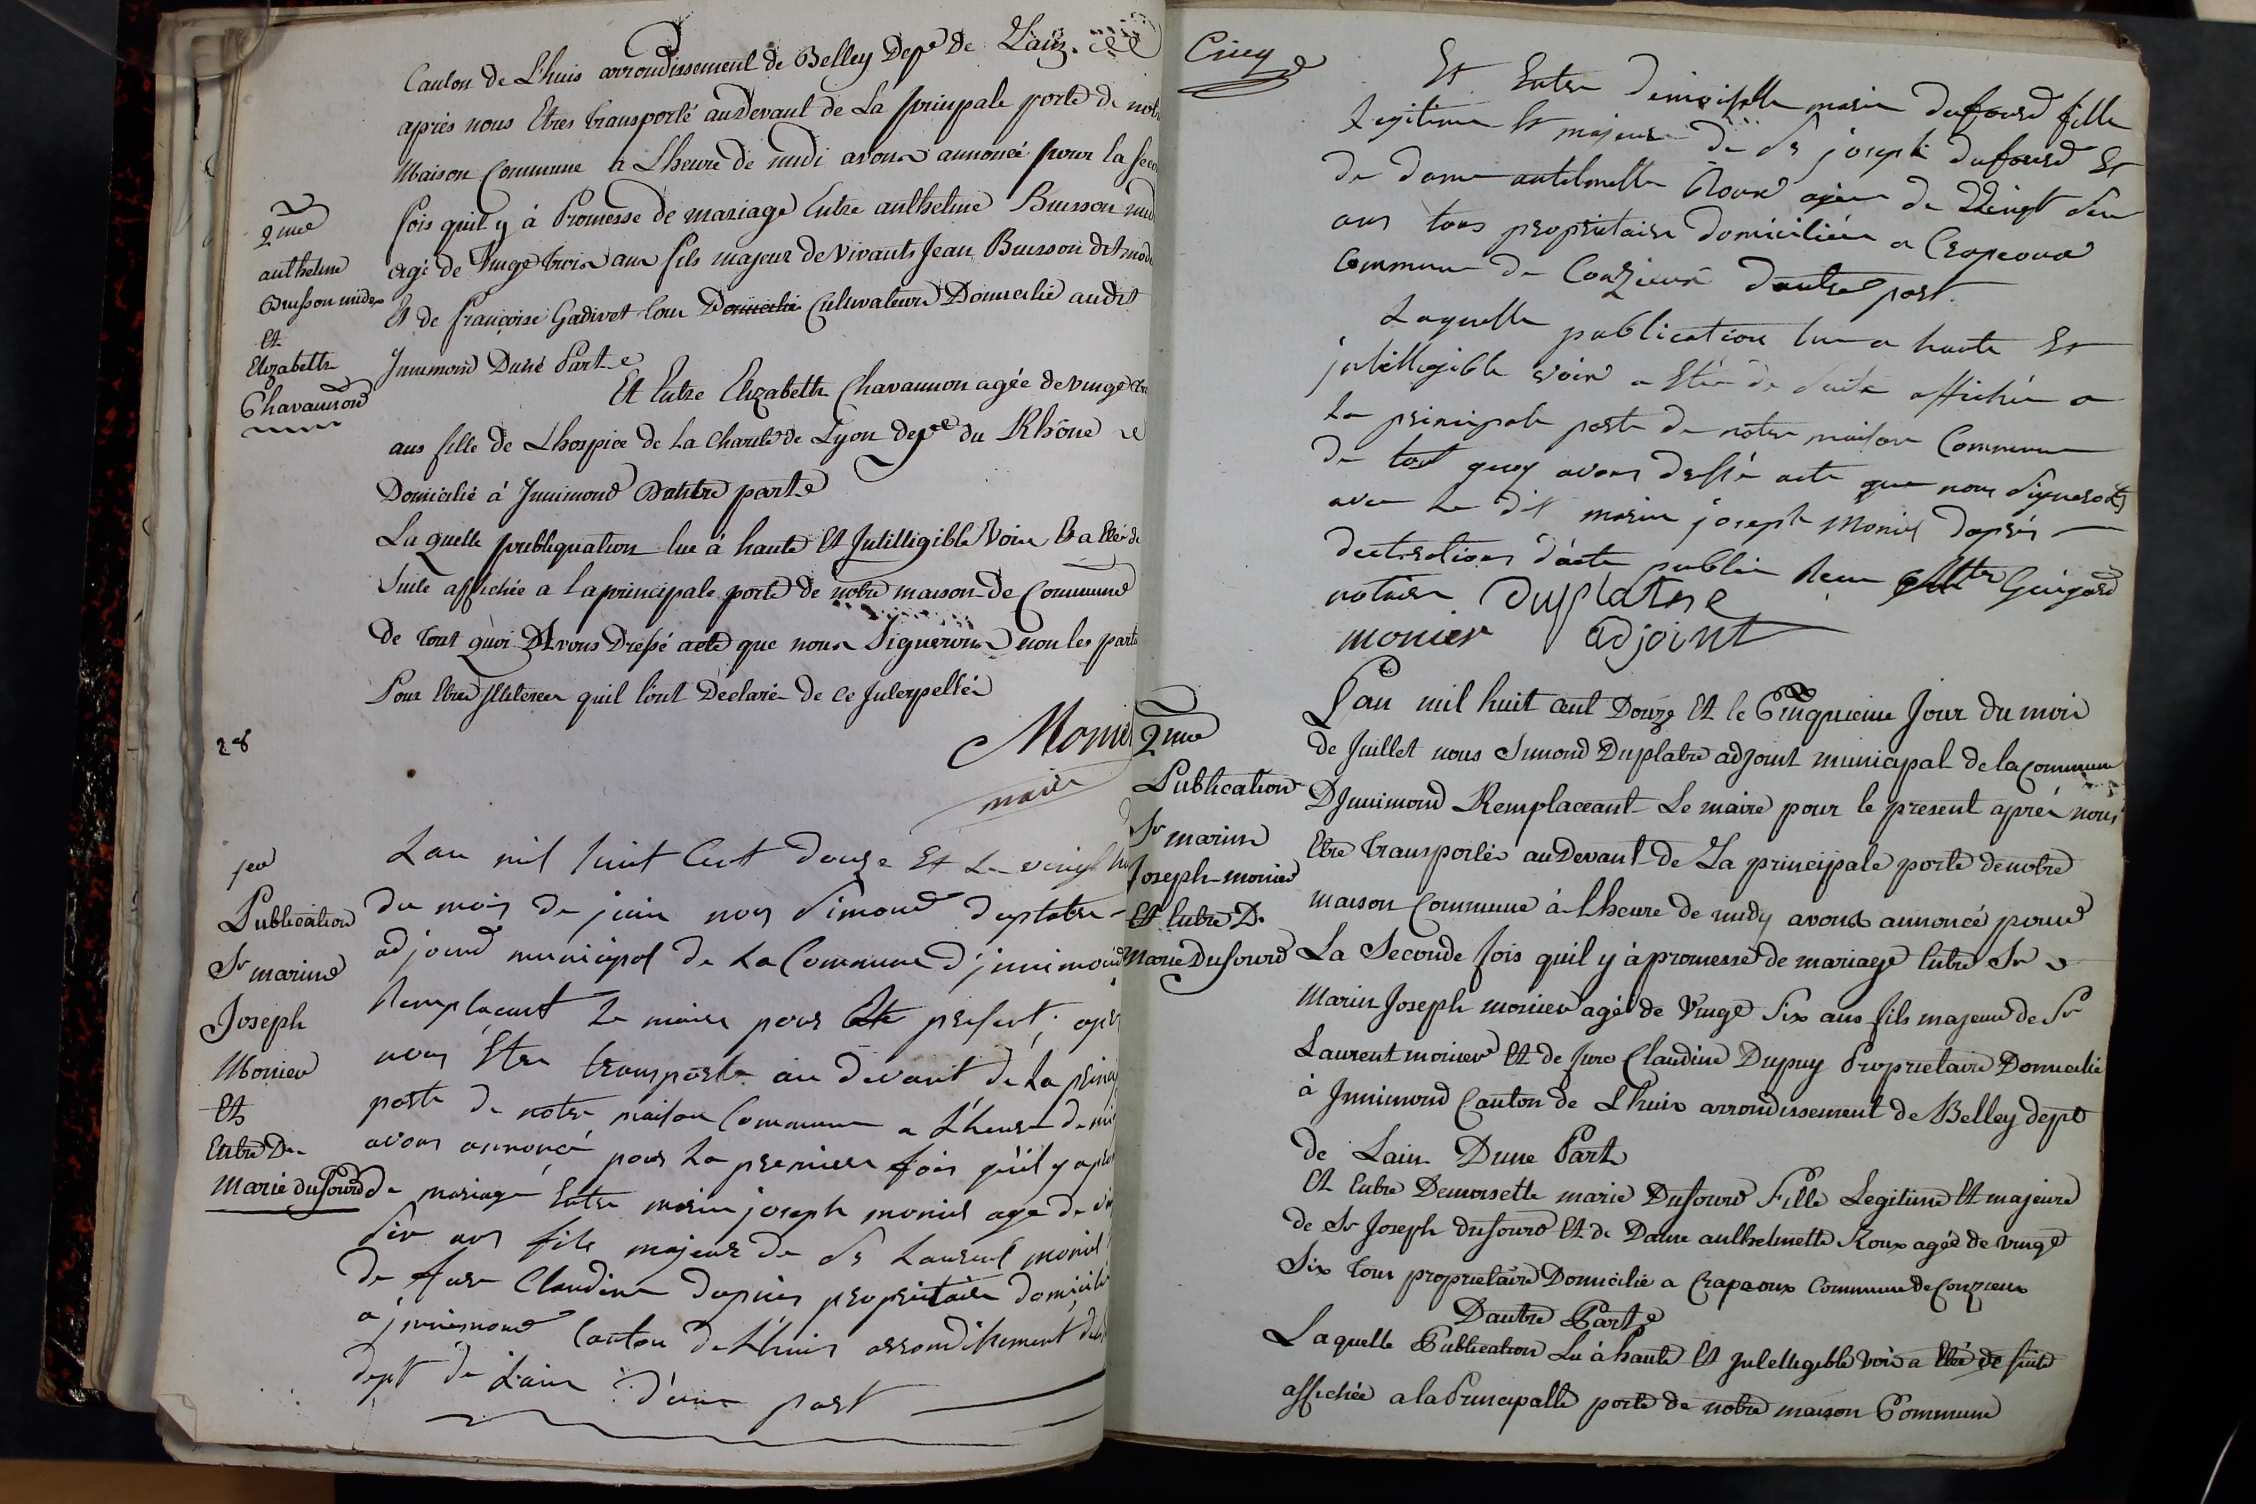 Canton de Lhuis arrondissement de Belley Depe De Lain.
après nous Etres transporté audevant de La principale porte de notre
Maison Commune a Lheure de midi avons annoncé pour la seco
fois quil y à Promesse de mariage Entre anthelme Buisson mid
agé de vingt trois ans fils majeur de vivants Jean Buisson dit mode
Et de françoise Gadivet tous Domicilié Cultivateurs Domicilié audit
Innimond Dune Part
Et Entre Elizabeth Chavannon agée de vingt
ans fille de Lhospice de La Charité de Lyon depe du Rhône
Domicilié à Innimond Dautre parte
La quelle publiquation lue à haute Et Intilligible Voix Et a Eté de
Suite affichée a La principale porte de notre maison de Commune
de tout quoi Avons Dressé acte que nous Signerons non les parti
Pour Etres Illiterées quil lont Declaré de ce Interpellés
Monier
maire
2me
anthelme
Buisson midex
Et
Elizabeth
Chavannon
28
1ere
Publication
Sr marin
Joseph
Monier
Et
Entre De
marie dufourd
Lan mil huit Cent douze Et Le vingt hu
du mois de juin nous Simond duplatre
adjoint municipal de La Commune d'innimond
Remplacant Le maire pour Le present, apres
nous Etre transporte au devant de La princip
porte de notre maison Commune a L'heure de mi
avons annoncé pour La premiere fois qu'il y apro
de mariage Entre marin joseph monier agé de vi
Six ans fils majeur de Sr Laurent monier
de fure Claudine dupuis proprietaire domicilié
a jnnimond Canton de Lhuis arrondissement de
dept de Lain d'une part
Cinq
Et Entre demoiselle marie dufourd fille
legitime Et majeure de Sr joseph dufourd Et
de dame antelmette Roux agée de Vingt Six
ans tous proprietaire domiciliée a Crapeoux
Commune de Conzieux dautre part.
Laquelle publication lue a haute Et
jntelligible voix a Etée de Suite affichée a
La principale porte de notre maison Commune
de tout quoy avons dressé acte que nous Signerons
avec Le dit marin joseph Monier dapres
declarations d'acte public Recu Guigard
notaire Duplatre
monier adjoint
2me
Publication
Sr marin
Joseph monier
Et Entre D.
Marie Dufourd
Lan mil huit cent Douze Et le Cinquieme Jour du mois
de Juillet nous Simond Duplatre adjoint municipal de la commune
DJnnimond Remplaceant Le maire pour le present aprés nous
Etre Transportés auDevant de La principale porte denotre
maison Commune à Lheure de midy avons annoncé pour
La Seconde fois quil y à promesse de mariage Entre Sr
Marin Joseph monier agé de Vingt Six ans fils majeur de Sr
Laurent monier Et de fure Claudine Dupuy Proprietaire Domicilié
à Jnnimond Canton de Lhuis arrondissement de Belley dept
de Lain Dune Part
Et Entre Demoiselle marie Dufourd Fille Legitime Et majeure
de Sr Joseph dufourd Et de Dame anthelmette Roux agée de vingt
Six tous proprietaire Domicilié a Crapeoux Commune de Conzieux
Dautre Parte
Laquelle Publication Lu à haute Et Jntelligible voix a Eté de suite
affichée a la Principalle porte de notre maison Commune